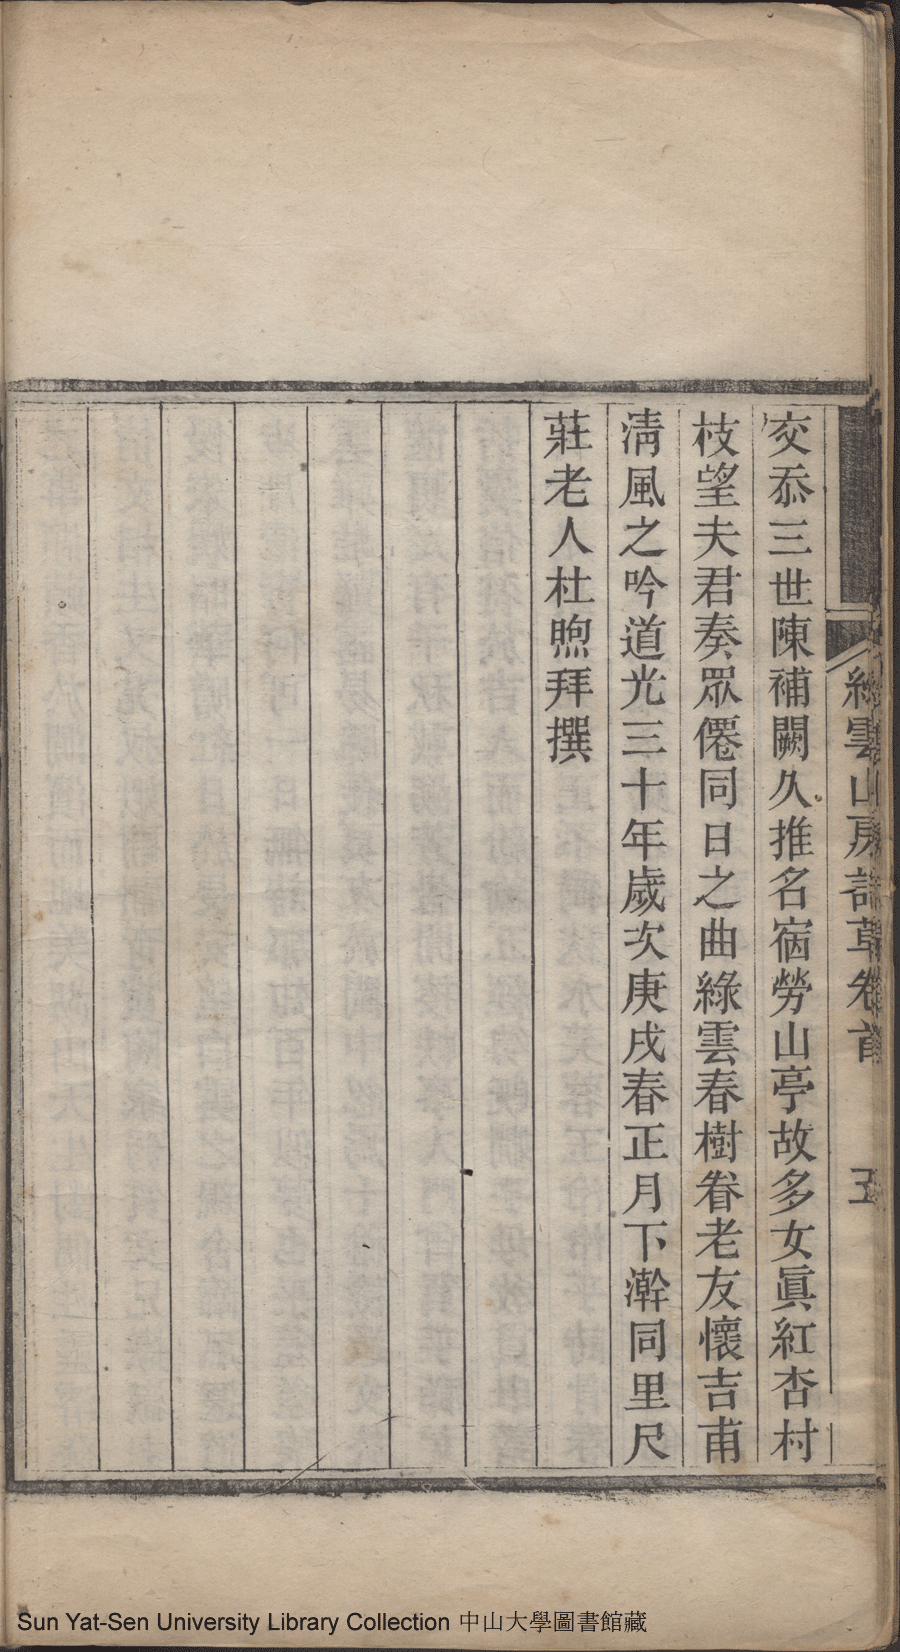 交忝三世陳補闕久推名宿勞山亭故多女眞紅杏村
枝望夫君奏眾僊同日之曲綠雲春樹眷老友懷吉甫
淸風之吟道光三十年歲次庚戌春正月下澣同里尺
莊老人杜煦拜撰
綠雲山房詩草卷首
五
Sun Yat-Sen University Library Collection 中山大學圖書館藏